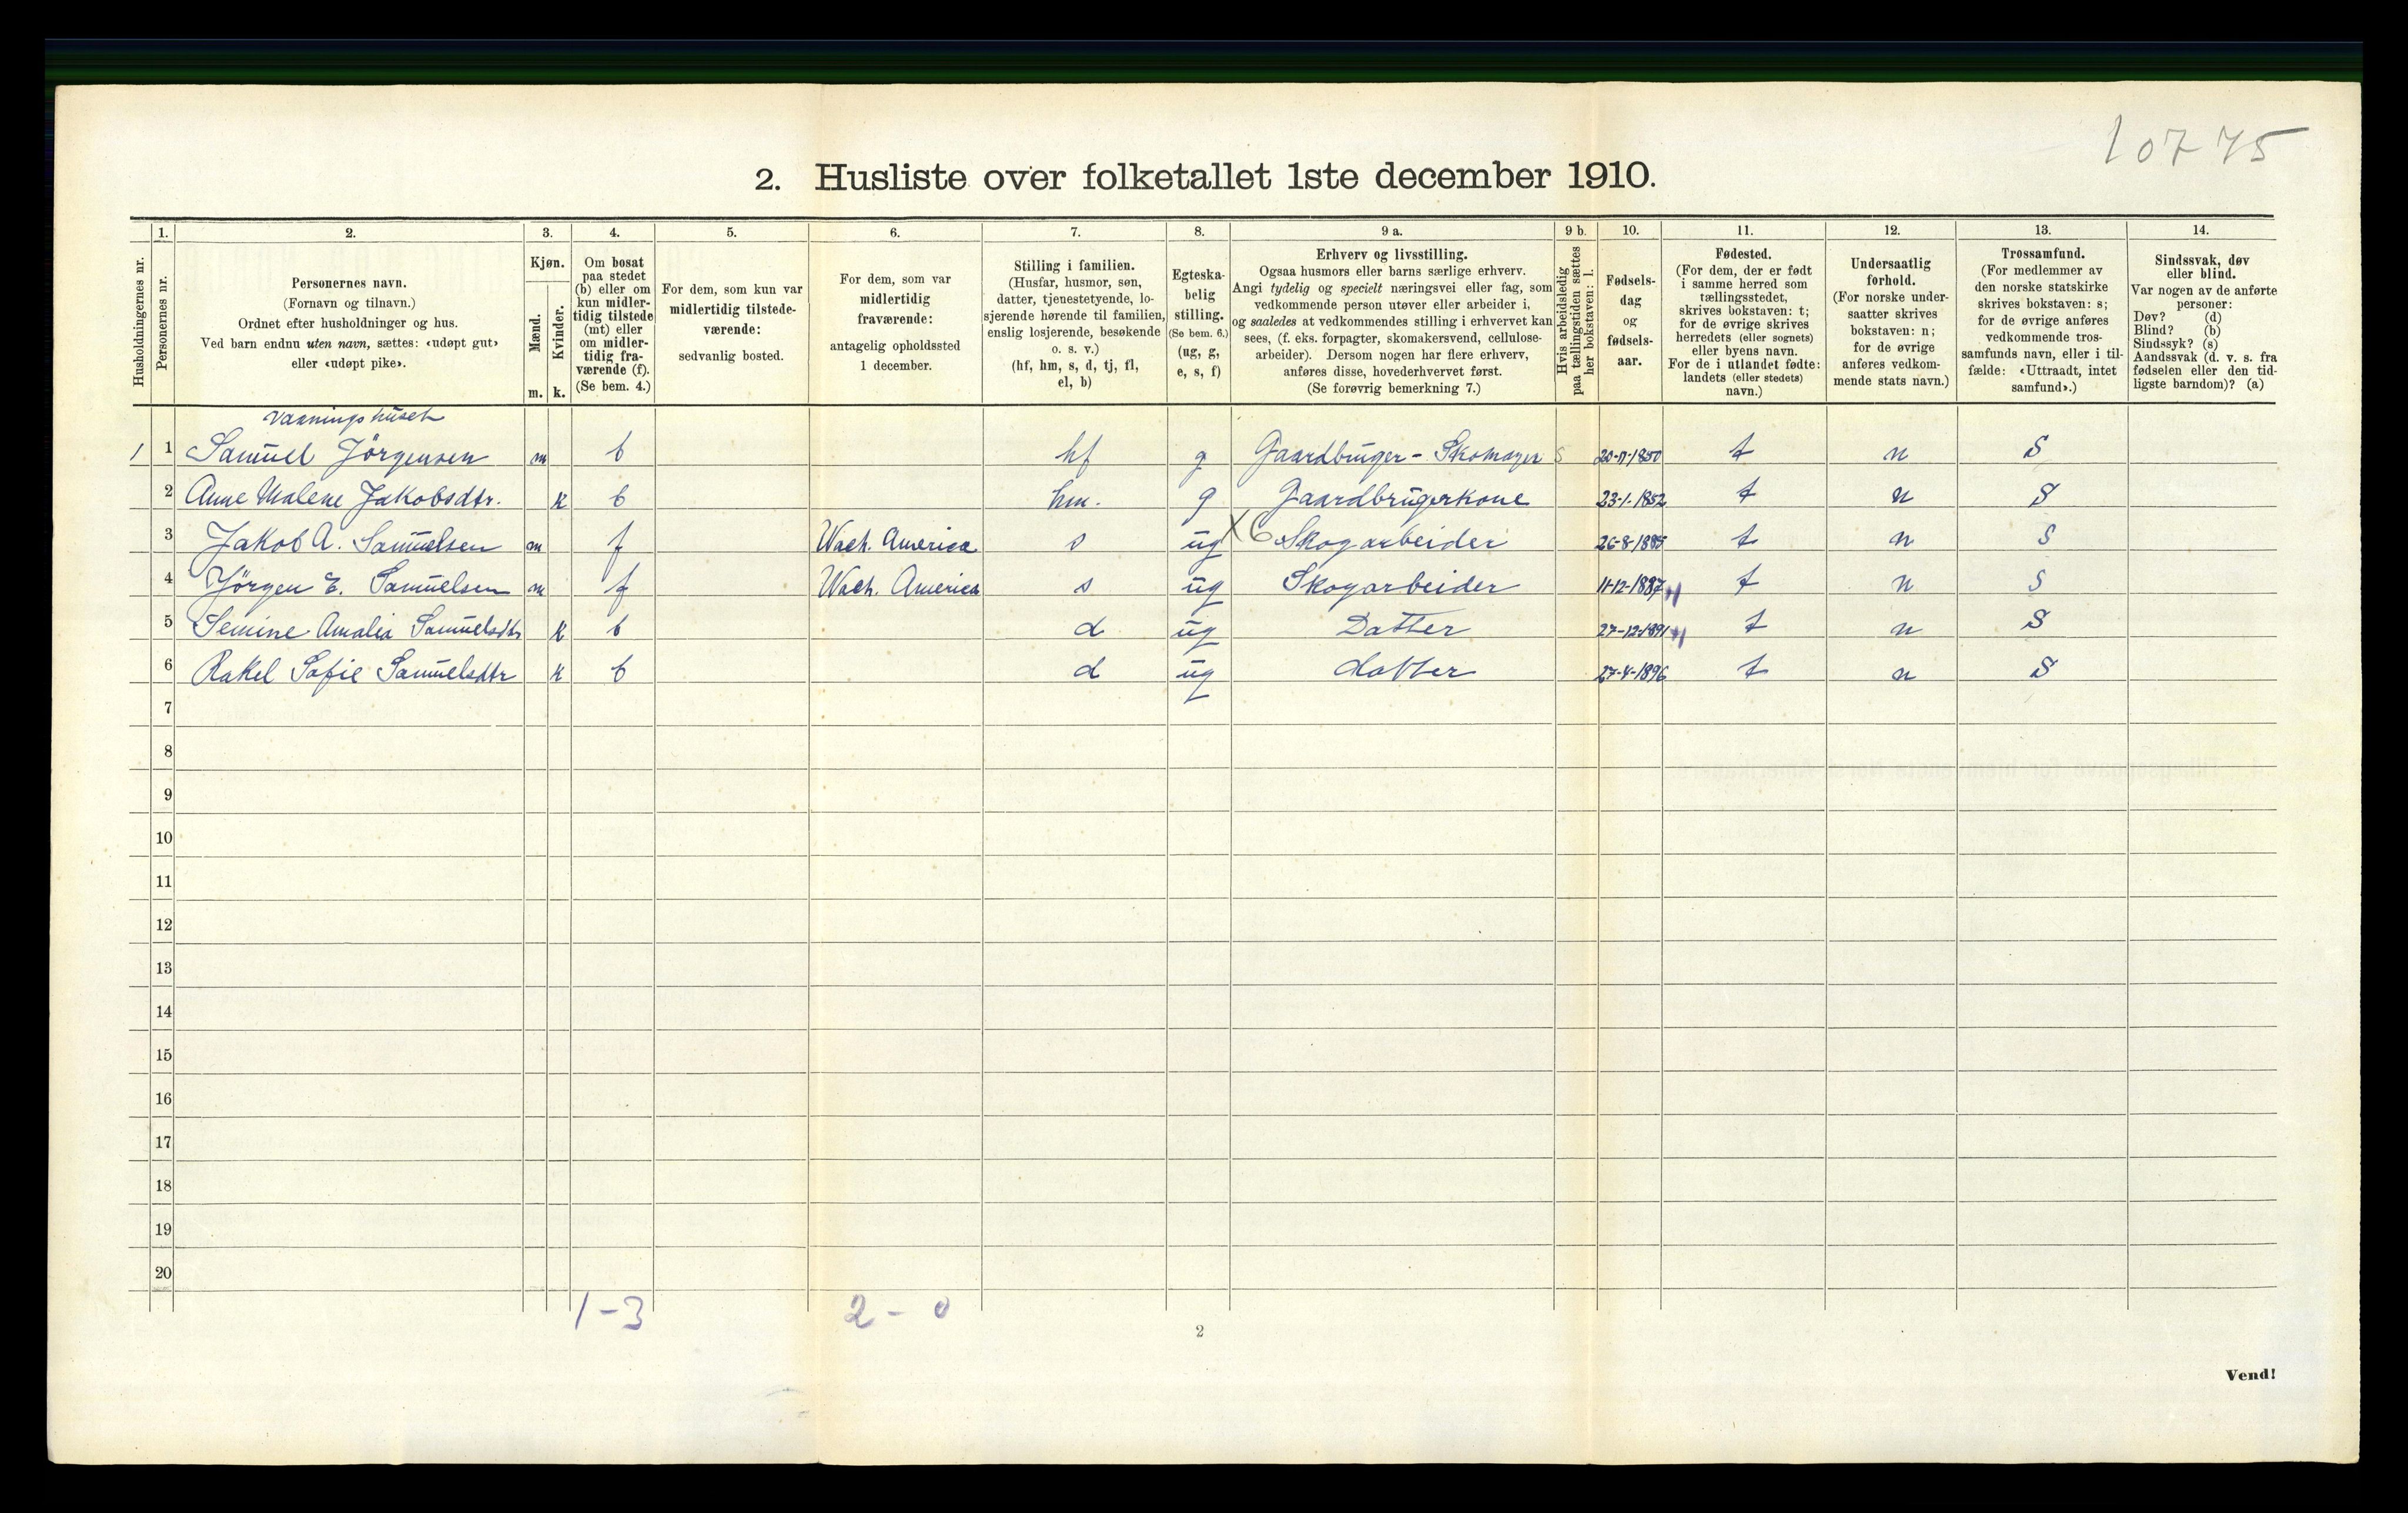 10775
2. Husliste over folketallet 1ste december 1910.
Husholdningernes nr.
1.
Personernes nr.
2.
Personernes navn.
(Fornavn og tilnavn.)
Ordnet efter husholdninger og hus.
Ved barn endnu uten navn, sættes: «udøpt gut»
eller «udøpt pike».
3.
Kjøn.
Mænd.
Kvinder.
m. k.
4.
Om bosat
paa stedet
(b) eller om
kun midler-
tidig tilstede
(mt) eller
om midler-
tidig fra-
værende (f).
(Se bem. 4.)
5.
For dem, som kun var
midlertidig tilstede-
værende:
sedvanlig bosted.
6.
For dem, som var
midlertidig
fraværende:
antagelig opholdssted
1 december.
7.
Stilling i familien.
(Husfar, husmor, søn,
datter, tjenestetyende, lo-
sjerende hørende til familien,
enslig losjerende, besøkende
o. s. v.)
(hf, hm, s, d, tj, fl,
el, b)
8.
Egteska-
belig
stilling.
(Se bem. 6.)
(ug, g,
e, s, f)
9 a.
Erhverv og livsstilling.
Ogsaa husmors eller barns særlige erhverv.
Angi tydelig og specielt næringsvei eller fag, som
vedkommende person utøver eller arbeider i,
og saaledes at vedkommendes stilling i erhvervet kan
sees, (f. eks. forpagter, skomakersvend, cellulose-
arbeider). Dersom nogen har flere erhverv,
anføres disse, hovederhvervet først.
(Se forøvrig bemerkning 7.)
9 b.
Hvis arbeidsledig
paa tællingstiden sættes
her bokstaven: l.
10.
Fødsels-
dag
og
fødsels-
aar.
11.
Fødested.
(For dem, der er født
i samme herred som
tællingsstedet,
skrives bokstaven: t;
for de øvrige skrives
herredets (eller sognets)
eller byens navn.
For de i utlandet fødte:
landets (eller stedets)
navn.)
12.
Undersaatlig
forhold.
(For norske under-
saatter skrives
bokstaven: n;
for de øvrige
anføres vedkom-
mende stats navn.)
13.
Trossamfund.
(For medlemmer av
den norske statskirke
skrives bokstaven: s;
for de øvrige anføres
vedkommende tros-
samfunds navn, eller i til-
fælde: «Uttraadt, intet
samfund».)
14.
Sindssvak, døv
eller blind.
Var nogen av de anførte
personer:
Døv? (d)
Blind? (b)
Sindssyk? (s)
Aandssvak (d. v. s. fra
fødselen eller den tid-
ligste barndom)? (a)
Vaaningshuset
1 1 Samuel Jörgensen m b hf g Gaardbruger - Skomager S 20-11-1850 t n S
2 Anne Malene Jakobsdtr. k b hm. g Gaardbrugerkone 23-1-1852 t n S
3 Jakob A. Samuelsen m f Wash. America s ug X6 Skogarbeider 26-8-1885 t n S
4 Jörgen E. Samuelsen m f Wash. America s ug Skogarbeider 11-12-1887 t n S
5 Semine Amalia Samuelsdtr k b d ug Datter 27-12-1891 t n S
6 Rakel Sofie Samuelsdtr k b d ug datter 27-4-1896 t n S
7
8
9
10
11
12
13
14
15
16
17
18
19
20
1-3 2-0
2
Vend!